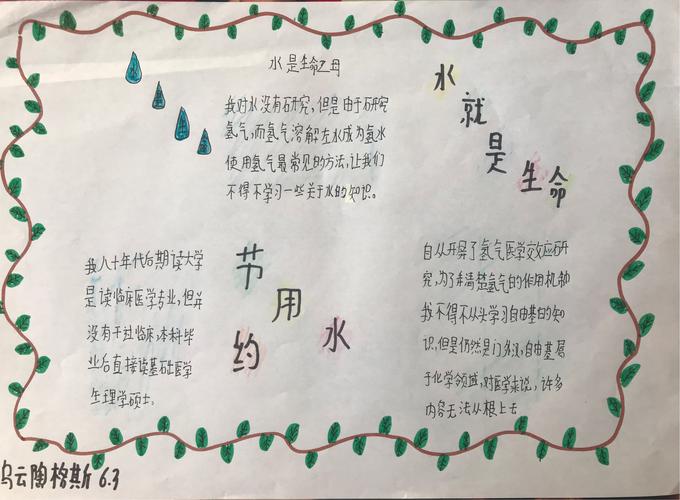 水是生命之母
我对水没有研究,但是由于研究
氢气,而氢气溶解在水成为氢水
使用氢气最常见的方法,让我们
不得不学习一些关于水的知识。
水
就
是
生命
我八十年代后期读大学
是读临床医学专业,但并
没有干过临床,本科毕
业后直接读基础医学
生理学硕士。
节
约
用
水
自从开展了氢气医学效应研
究,为了弄清楚氢气的作用机制
我不得不从头学习自由基的知
识,但是仍然是门外汉,自由基属
于化学领域,对医学来说,许多
内容无法从根上去
乌云陶格斯 6.3